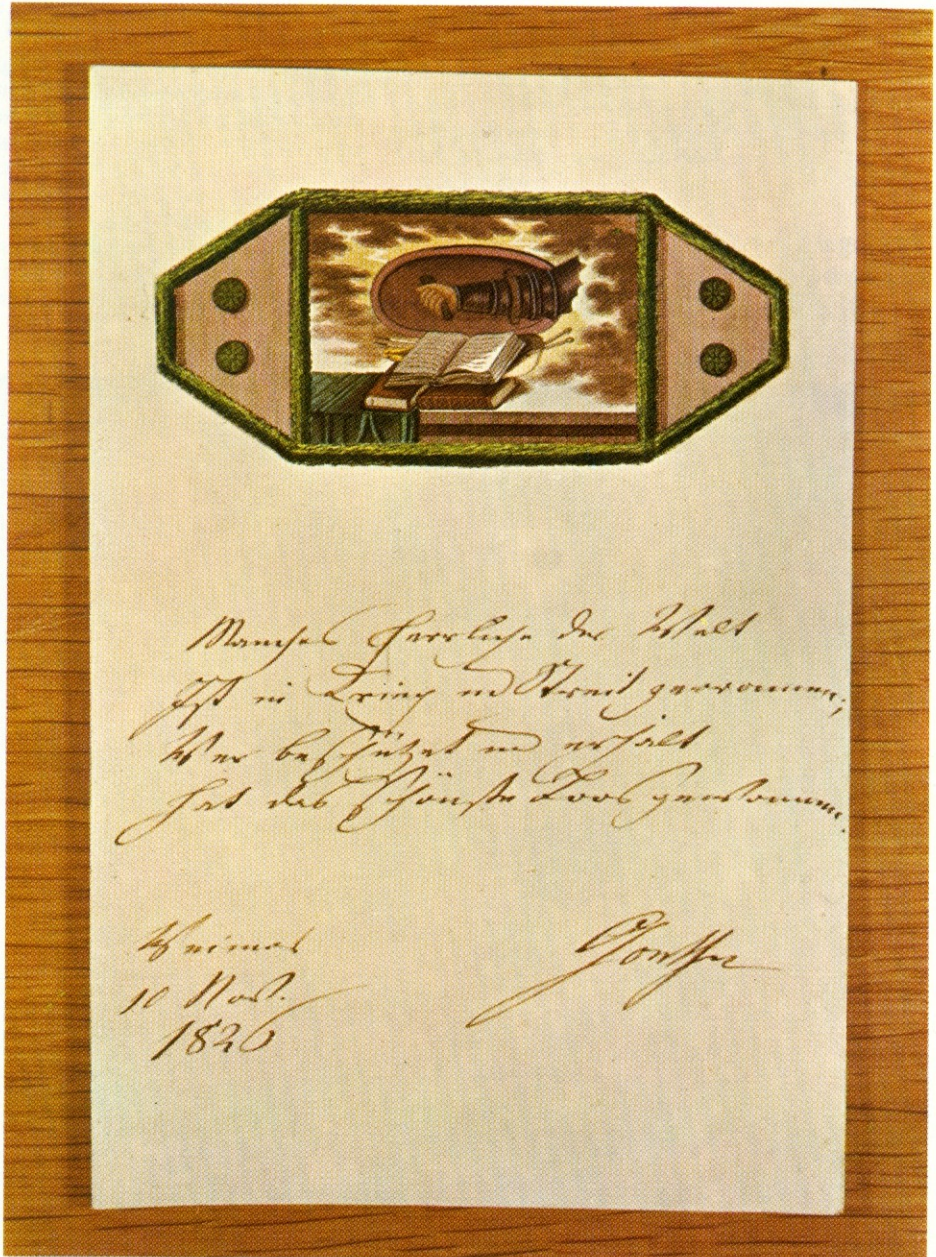 Manches Herrliche der Welt
Ist in Krieg und Streit zerronnen;
Wer beschützet und erhält
Hat das schönste Loos gewonnen.
Weimar
10 Nov.
1826
Goethe